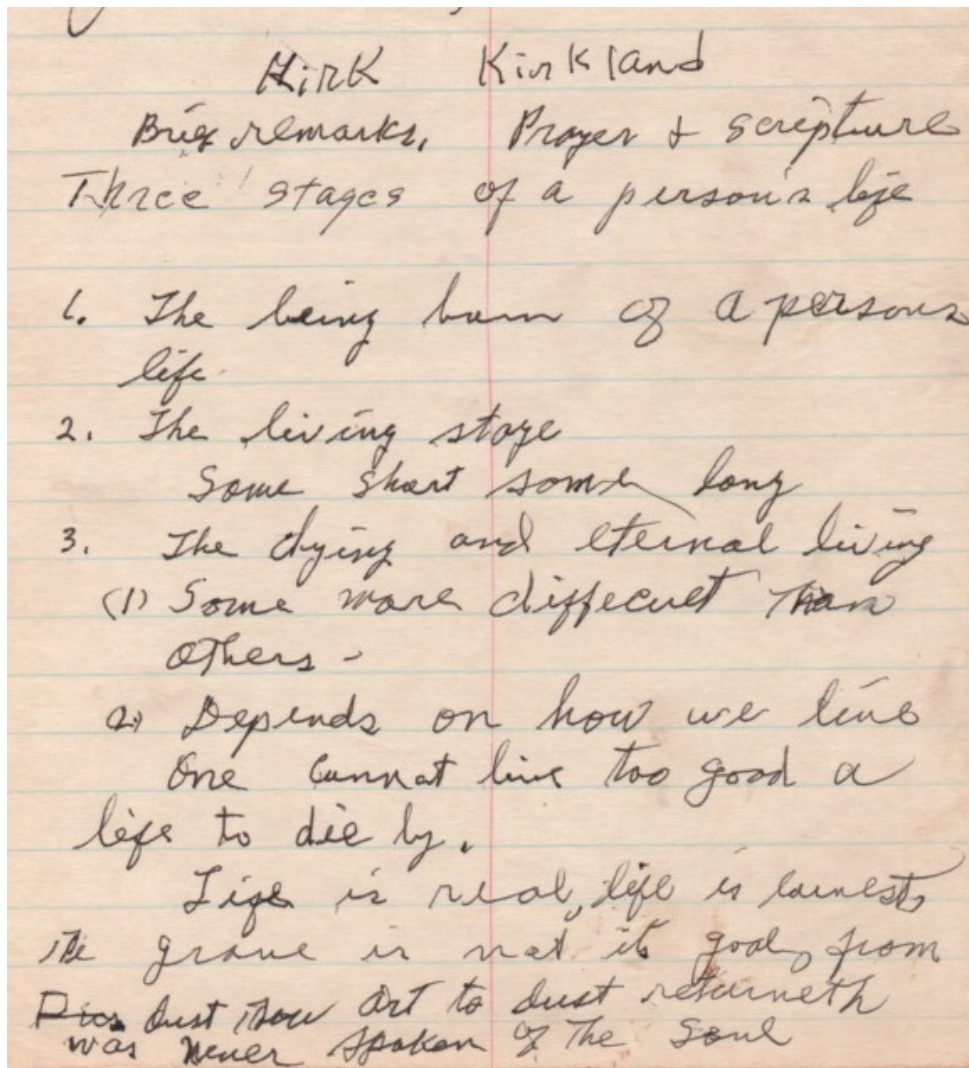 Kirk Kirkland
Brief remarks, Prayer & scripture
Three stages of a person's life
1. The being born of a persons
life.
2. The living stage
Some short some long
3. The dying and eternal living
(1) Some more difficult than
others -
2) Depends on how we live
One cannot live too good a
life to die by.
Life is real, life is earnest,
The grave is not its goal, from
dust thou art to dust returneth
was never spoken of the soul